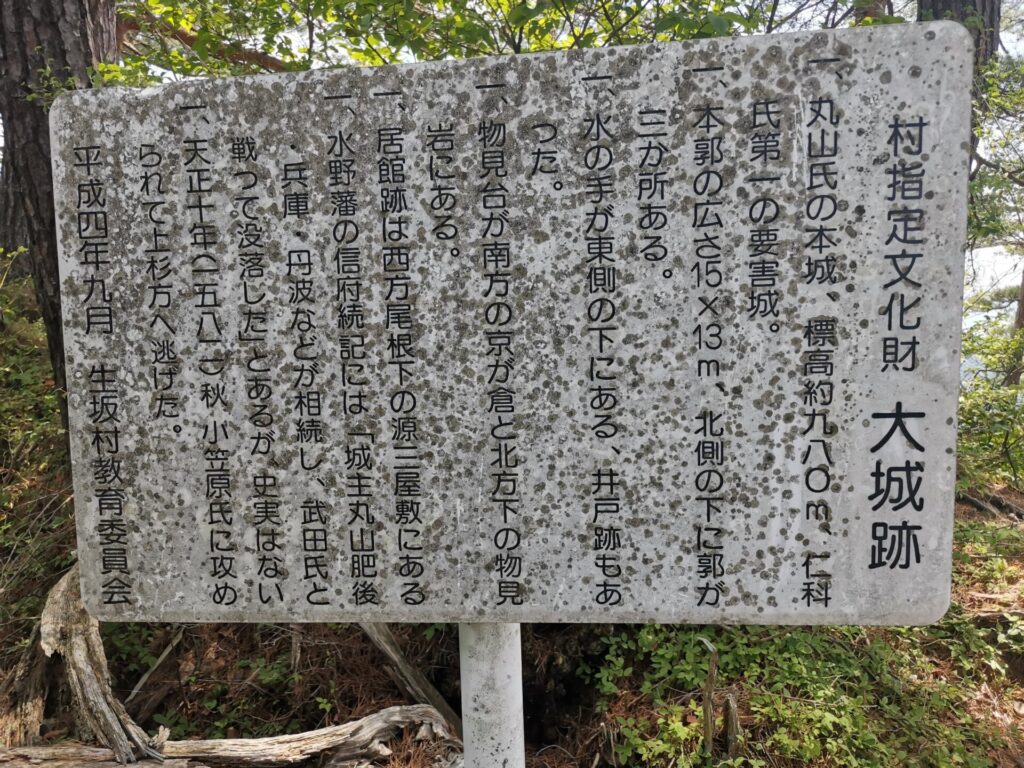 村指定文化財 大城跡
一、丸山氏の本城、標高約九八〇m、仁科
氏第一の要害城。
一、本郭の広さ15×13m、北側の下に郭が
三か所ある。
一、水の手が東側の下にある、井戸跡もあ
った。
一、物見台が南方の京が倉と北方下の物見
岩にある。
一、居館跡は西方尾根下の源三屋敷にある
一、水野藩の信府続記には「城主丸山肥後
・兵庫・丹波などが相続し、武田氏と
戦つて没落した」とあるが、史実はない
一、天正十年(一五八二)秋、小笠原氏に攻め
られて上杉方へ逃げた。
平成四年九月 生坂村教育委員会